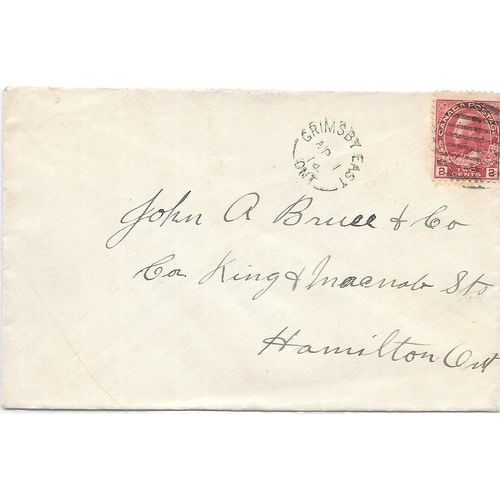 GRIMSBY EAST
AP 1
ONT
CANADA POSTAGE
2 CENTS 2
John A Bruce & Co
Co King & Macnab Sts
Hamilton Ont